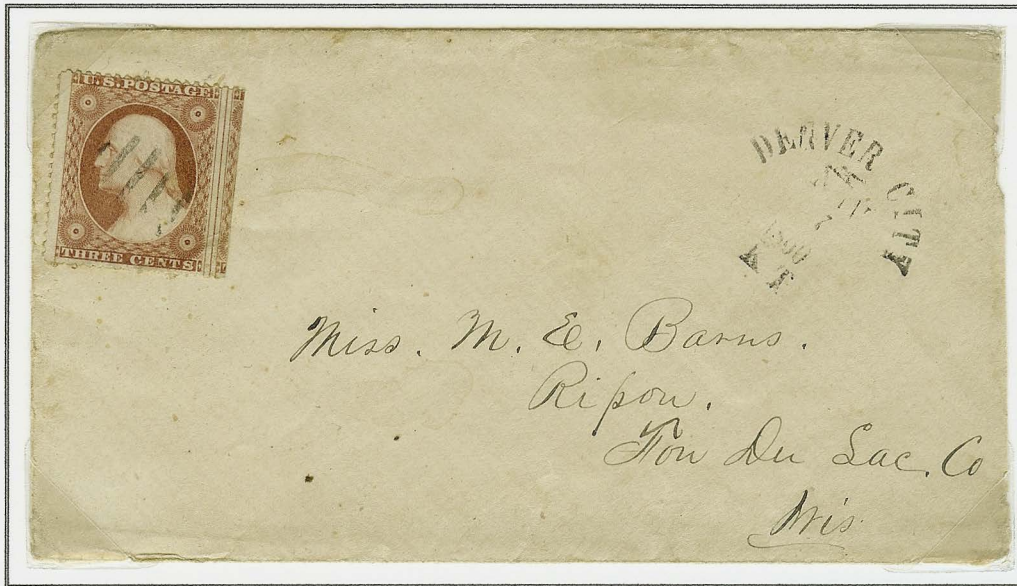 U.S. POSTAGE
THREE CENTS
DENVER CITY
1860
K T
Miss. M. E. Barns.
Ripon.
Fon Du Lac. Co
Wis